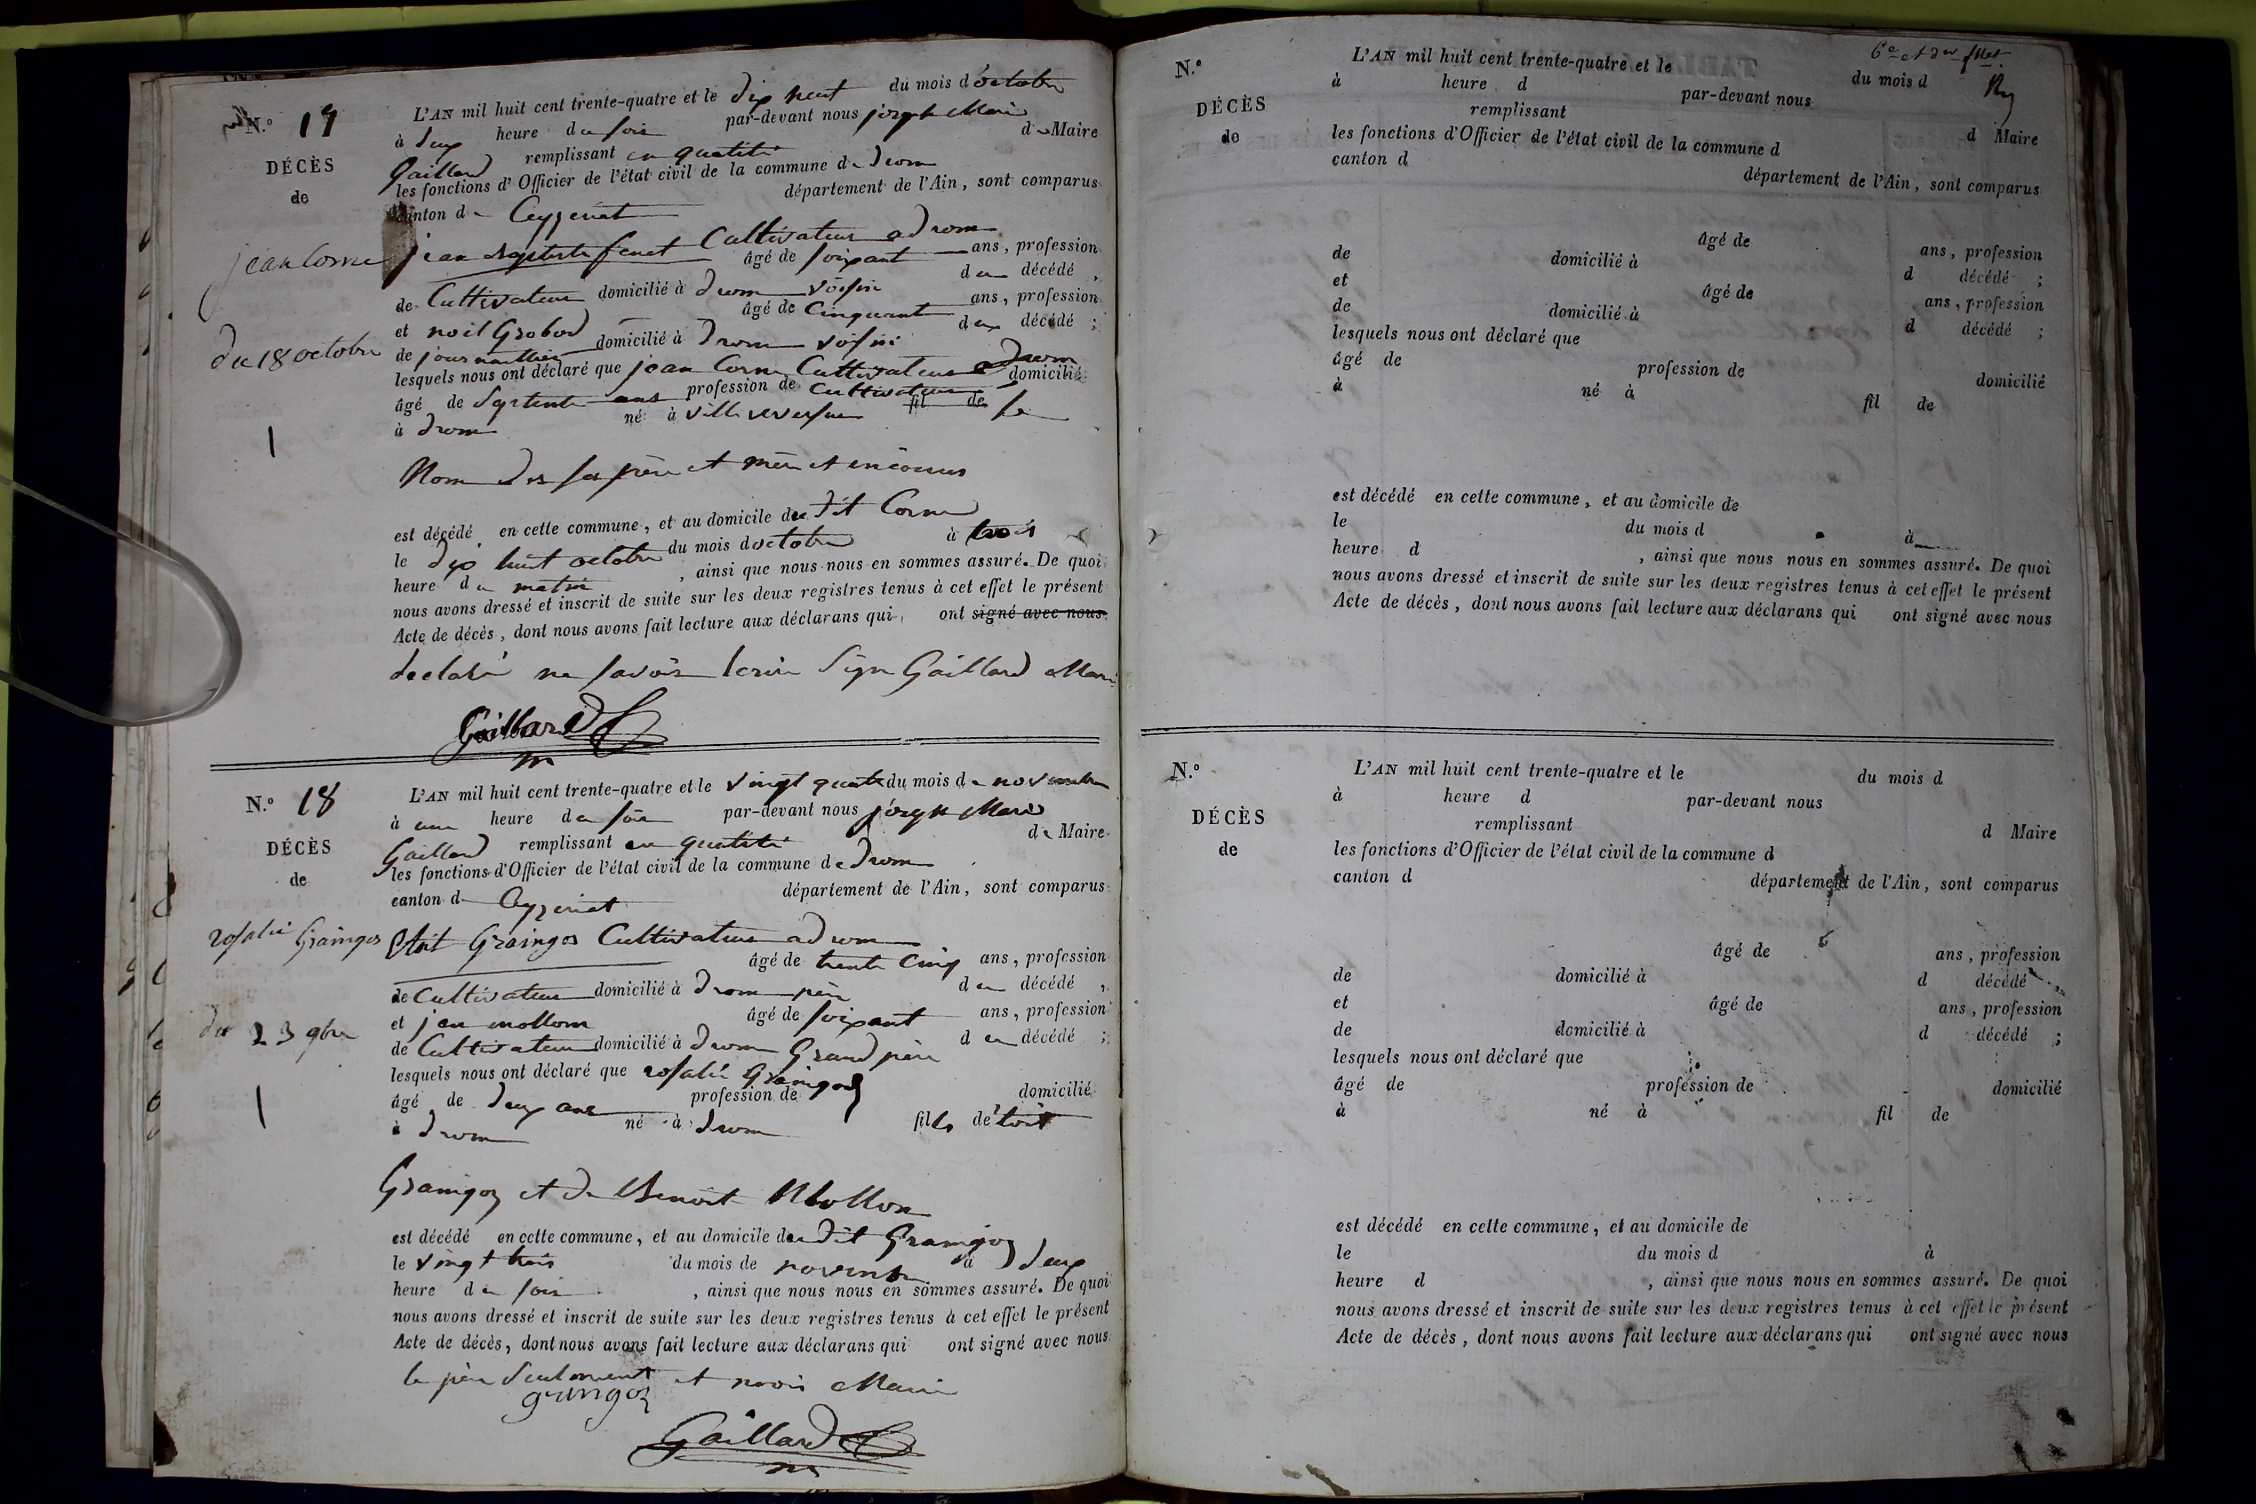 N.° 17
DÉCÈS
de
jean Corne
du 18 octobre
1
L'AN mil huit cent trente-quatre et le dix neuf du mois d'octobre
à deux heure du soir par-devant nous joseph Marie
Gaillard remplissant en qualité de Maire
les fonctions d'Officier de l'état civil de la commune de drom
canton de Ceyzeriat département de l'Ain, sont comparus
jean Baptiste Cultivateur a drom
âgé de soixant ans, profession
de Cultivateur domicilié à drom voisin du décédé,
et noel Grobod âgé de Cinquant ans, profession
de journallier domicilié à drom voisin du décédé;
lesquels nous ont déclaré que jean Corne Cultivateur a drom
âgé de septente ans profession de cultivateur domicilié
à drom né à ville reversure fil de le
Nom des ses père et mère et inconus
est décédé en cette commune, et au domicile du dit Corne
le dix huit octobre du mois doctobre à trois
heure du matin, ainsi que nous nous en sommes assuré. De quoi
nous avons dressé et inscrit de suite sur les deux registres tenus à cet effet le présent
Acte de décès, dont nous avons fait lecture aux déclarans qui ont signé avec nous
declaré ne savoir Signe Gaillard Maire
Gaillard
m
N.° 18
DÉCÈS
de
rosalie Graingos
du 23 9bre
1
L'AN mil huit cent trente-quatre et le vingt quatre du mois de novembre
à une heure du soir par-devant nous joseph Marie
Gaillard remplissant en qualité de Maire
les fonctions d'Officier de l'état civil de la commune de drom
canton d Ceyzeriat département de l'Ain, sont comparus
Graingos Cultivateur a drom
âgé de trente Cinq ans, profession
de Cultivateur domicilié à drom père du décédé,
et jean mollon âgé de soixant ans, profession
de Cultivateur domicilié à drom Grand père du décédé;
lesquels nous ont déclaré que rosalie Graingos
âgé de deux ans profession de domicilié
à drom né à drom fille de
Graingos et de Benoit Mollon
est décédé en cette commune, et au domicile du dit Graingos
le vingt trois du mois de novembre à deux
heure du soir, ainsi que nous nous en sommes assuré. De quoi
nous avons dressé et inscrit de suite sur les deux registres tenus à cet effet le présent
Acte de décès, dont nous avons fait lecture aux déclarans qui ont signé avec nous
le père seulement et nous Maire
grangos
Gaillard
m
6e et der fllet
N.°
DÉCÈS
de
L'AN mil huit cent trente-quatre et le du mois d
à heure d par-devant nous
remplissant d Maire
les fonctions d'Officier de l'état civil de la commune d
canton d département de l'Ain, sont comparus
âgé de ans, profession
de domicilié à d décédé;
et âgé de ans, profession
de domicilié à d décédé;
lesquels nous ont déclaré que
âgé de profession de domicilié
à né à fil de
est décédé en cette commune, et au domicile de
le du mois d à
heure d, ainsi que nous nous en sommes assuré. De quoi
nous avons dressé et inscrit de suite sur les deux registres tenus à cet effet le présent
Acte de décès, dont nous avons fait lecture aux déclarans qui ont signé avec nous
N.°
DÉCÈS
de
L'AN mil huit cent trente-quatre et le du mois d
à heure d par-devant nous
remplissant d Maire
les fonctions d'Officier de l'état civil de la commune d
canton d département de l'Ain, sont comparus
âgé de ans, profession
de domicilié à d décédé,
et âgé de ans, profession
de domicilié à d décédé;
lesquels nous ont déclaré que
âgé de profession de domicilié
à né à fil de
est décédé en cette commune, et au domicile de
le du mois d à
heure d, ainsi que nous nous en sommes assuré. De quoi
nous avons dressé et inscrit de suite sur les deux registres tenus à cet effet le présent
Acte de décès, dont nous avons fait lecture aux déclarans qui ont signé avec nous